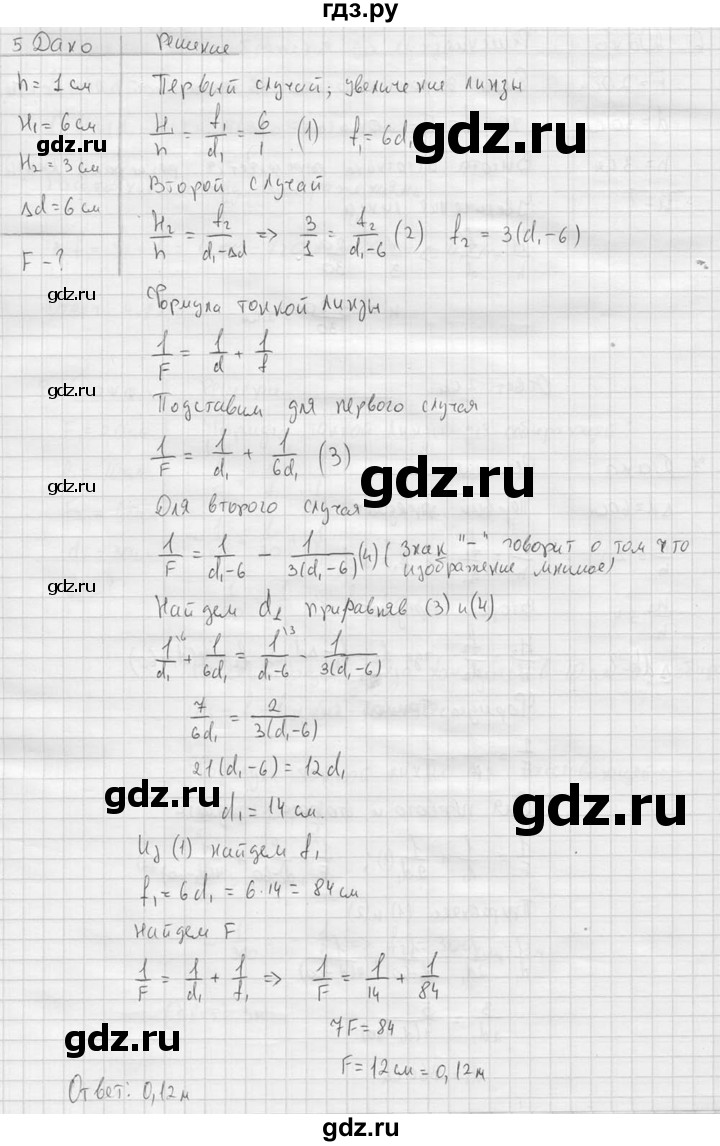 гдз.ру
5 Дано Решение
h = 1 см Первый случай; увеличение линзы
H₁ = 6 см H₁/h = f₁/d₁ = 6/1 (1) f₁ = 6d₁
gdz.ru
H₂ = 3 см Второй случай
Δd = 6 см H₂/h = f₂/(d₁-Δd) => 3/1 = f₂/(d₁-6) (2) f₂ = 3(d₁-6)
F - ?
gdz.ru
Формула тонкой линзы
1/F = 1/d + 1/f
gdz.ru
Подставим для первого случая
1/F = 1/d₁ + 1/6d₁ (3)
gdz.ru
gdz.ru
Для второго случая
1/F = 1/(d₁-6) - 1/3(d₁-6) (4) (Знак "-" говорит о том что
изображение мнимое)
gdz.ru
Найдем d₁ приравняв (3) и (4)
1\6/d₁ + 1/6d₁ = 1\3/(d₁-6) - 1/3(d₁-6)
7/6d₁ = 2/3(d₁-6)
21(d₁-6) = 12d₁
gdz.ru
gdz.ru
d₁ = 14 см
Из (1) найдем f₁
f₁ = 6d₁ = 6·14 = 84 см
Найдем F
1/F = 1/d₁ + 1/f₁ => 1/F = 1/14 + 1/84
7F = 84
gdz.ru
gdz.ru
F = 12 см = 0,12 м
Ответ: 0,12 м
gdz.ru